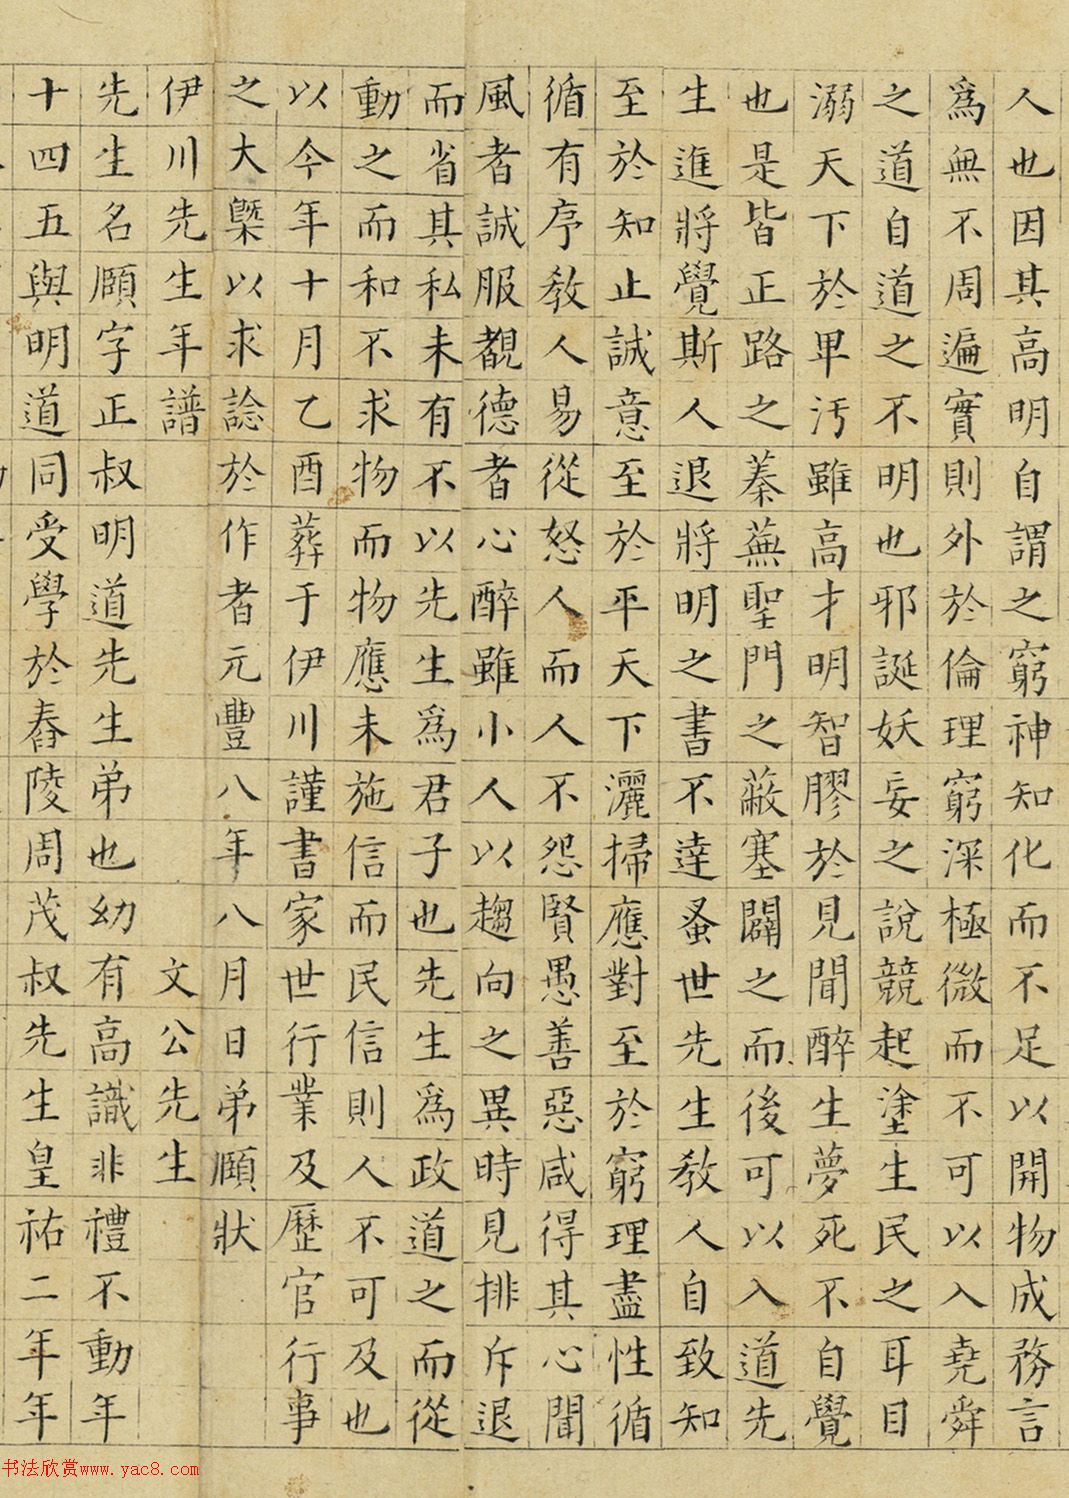 人也因其高明自謂之窮神知化而不足以開物成務言
爲無不周遍實則外於倫理窮深極微而不可以入堯舜
之道自道之不明也邪誕妖妄之說競起塗生民之耳目
溺天下於卑汚雖高才明智膠於見聞醉生夢死不自覺
也是皆正路之蓁蕪聖門之蔽塞闢之而後可以入道先
生進將覺斯人退將明之書不幸蚤世先生教人自致知
至於知止誠意至於平天下灑掃應對至於窮理盡性循
循有序教人易從怒人而人不怨賢愚善惡咸得其心聞
風者誠服覩德者心醉雖小人以趨向之異時見排斥退
而省其私未有不以先生爲君子也先生爲政道之而從
動之而和不求物而物應未施信而民信則人不可及也
以今年十月乙酉葬于伊川謹書家世行業及歷官行事
之大槩以求誌於作者元豐八年八月日弟頤狀
伊川先生年譜 文公先生
先生名頤字正叔明道先生弟也幼有高識非禮不動年
十四五與明道同受學於舂陵周茂叔先生皇祐二年年
书法欣赏www.yac8.com